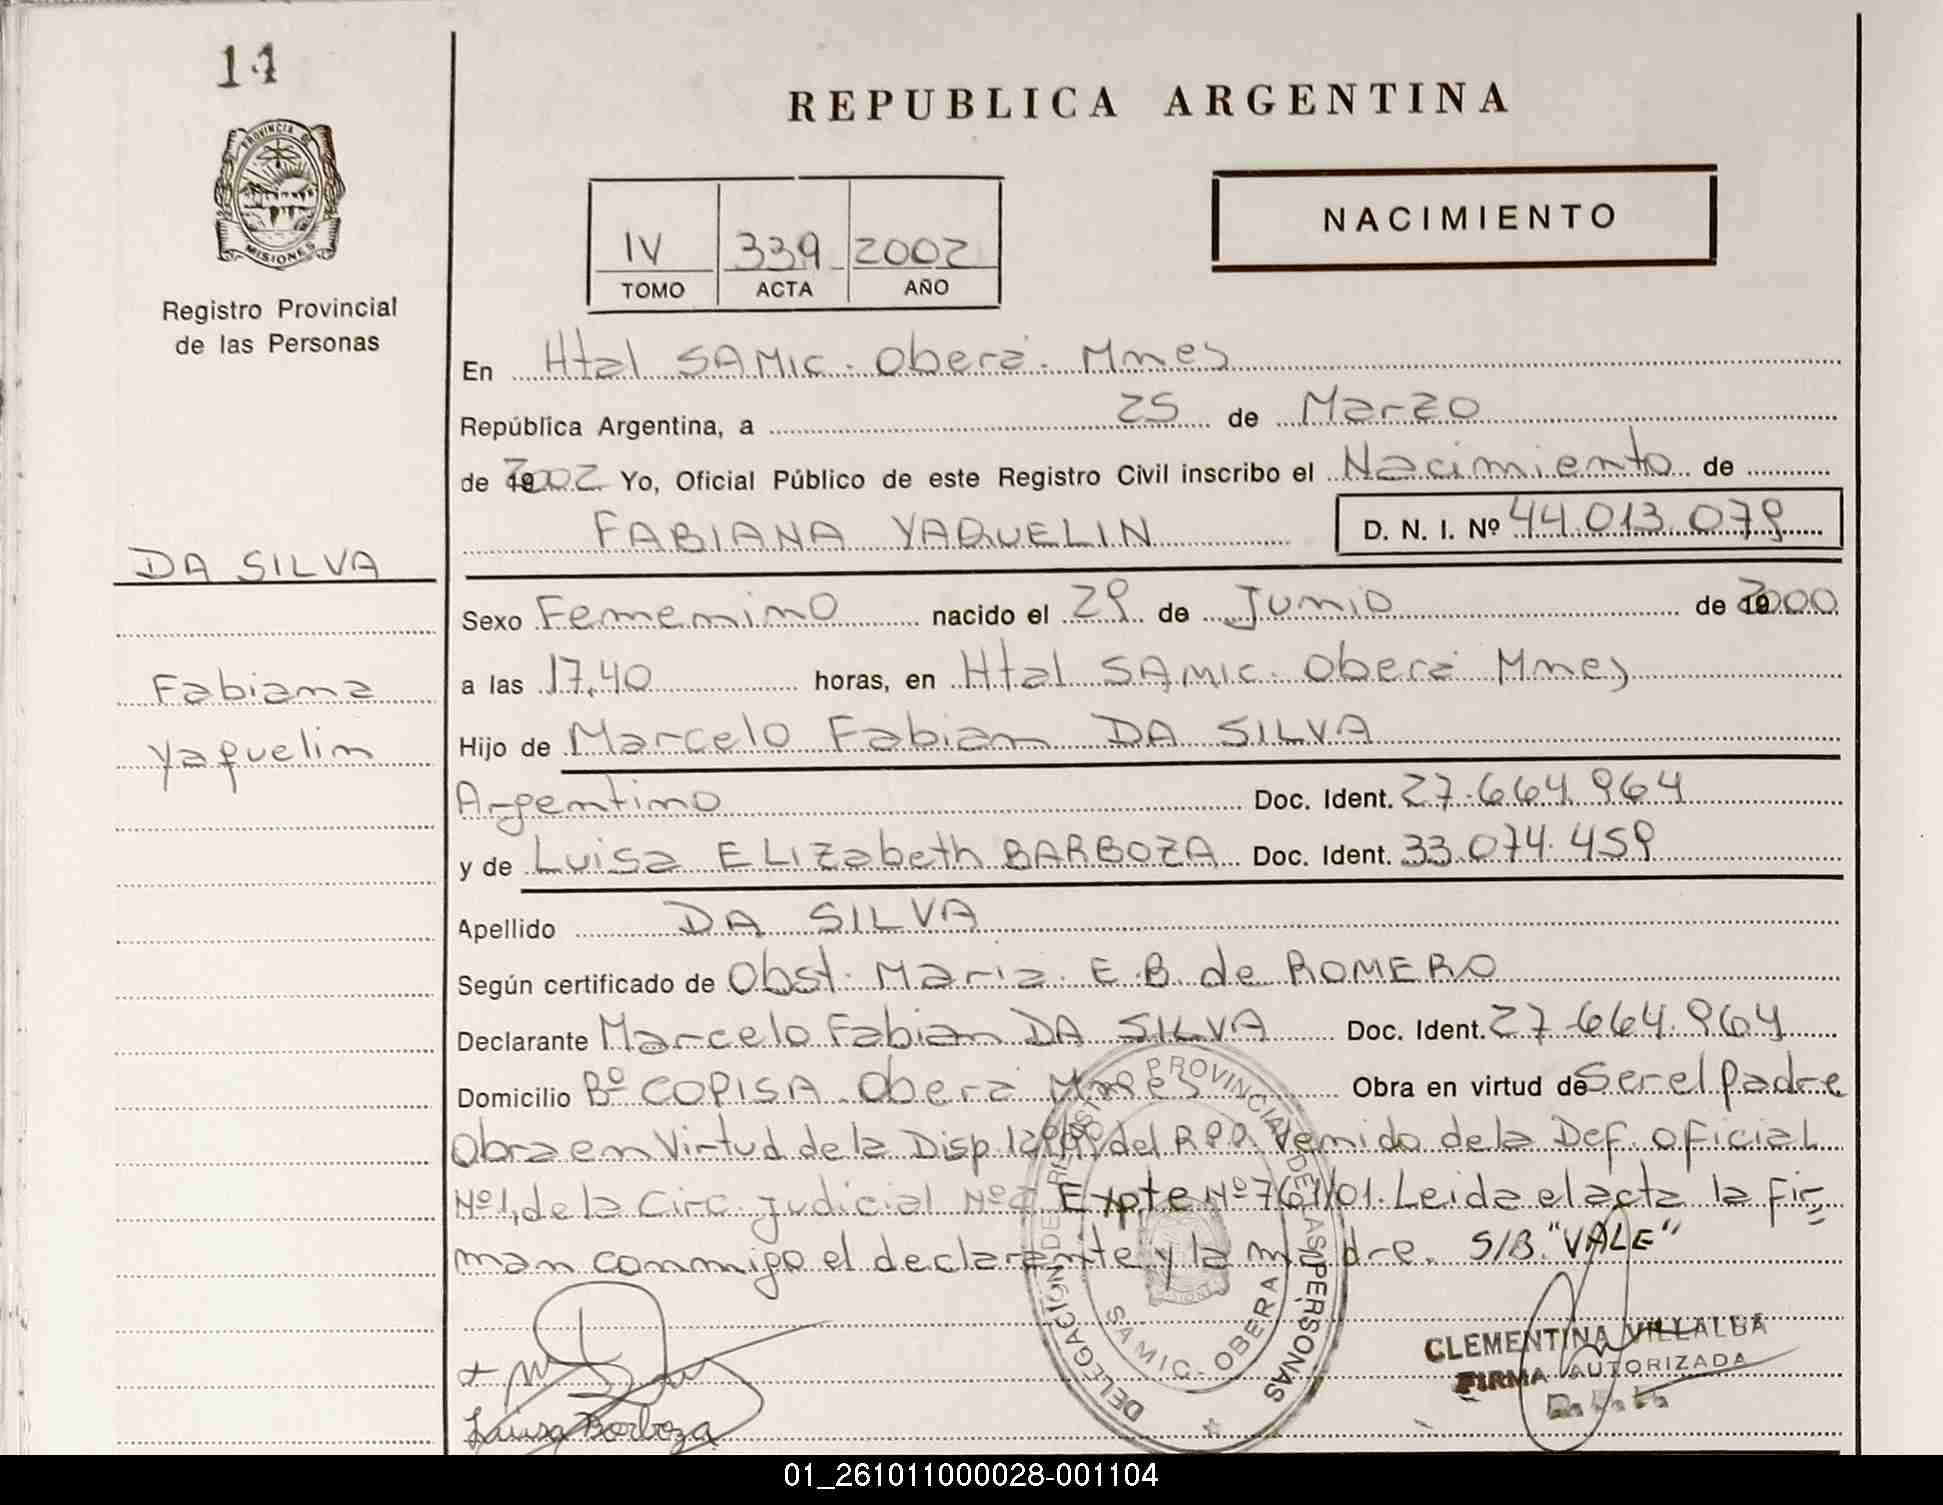 11
PROVINCIA DE
MISIONES
Registro Provincial
de las Personas
DA SILVA
Fabiana
Yaquelin
REPUBLICA ARGENTINA
IV 339 2002
TOMO ACTA AÑO
NACIMIENTO
En Htal SAMic. Oberá. Mnes
República Argentina, a 25 de Marzo
de 2002 Yo, Oficial Público de este Registro Civil inscribo el Nacimiento de
FABIANA YAQUELIN D. N. I. Nº 44.013.079
Sexo Femenino nacido el 29 de Junio de 2000
a las 17,40 horas, en Htal SAMic. Oberá Mnes
Hijo de Marcelo Fabian DA SILVA
Argentino Doc. Ident. 27.664.964
y de Luisa ELIZabeth BARBOZA Doc. Ident. 33.074.459
Apellido DA SILVA
Según certificado de Obst. Maria E.B. de ROMERO
Declarante Marcelo Fabian DA SILVA Doc. Ident. 27.664.964
Domicilio Bº COPISA. Oberá Mnes Obra en virtud de Ser el Padre
Obra en Virtud de la Disp del Venido de la Def. oficial
Nº1, de la Circ. Judicial Expte Nº 761/01. Leida el acta la fir
man conmigo el declarante y la madre. S/B. "VALE"
Luisa Barboza
DELEGACION DE REGISTRO PROVINCIAL DE LAS PERSONAS
SAMIC-OBERA
CLEMENTINA VILLALBA
FIRMA AUTORIZADA
01_261011000028-001104